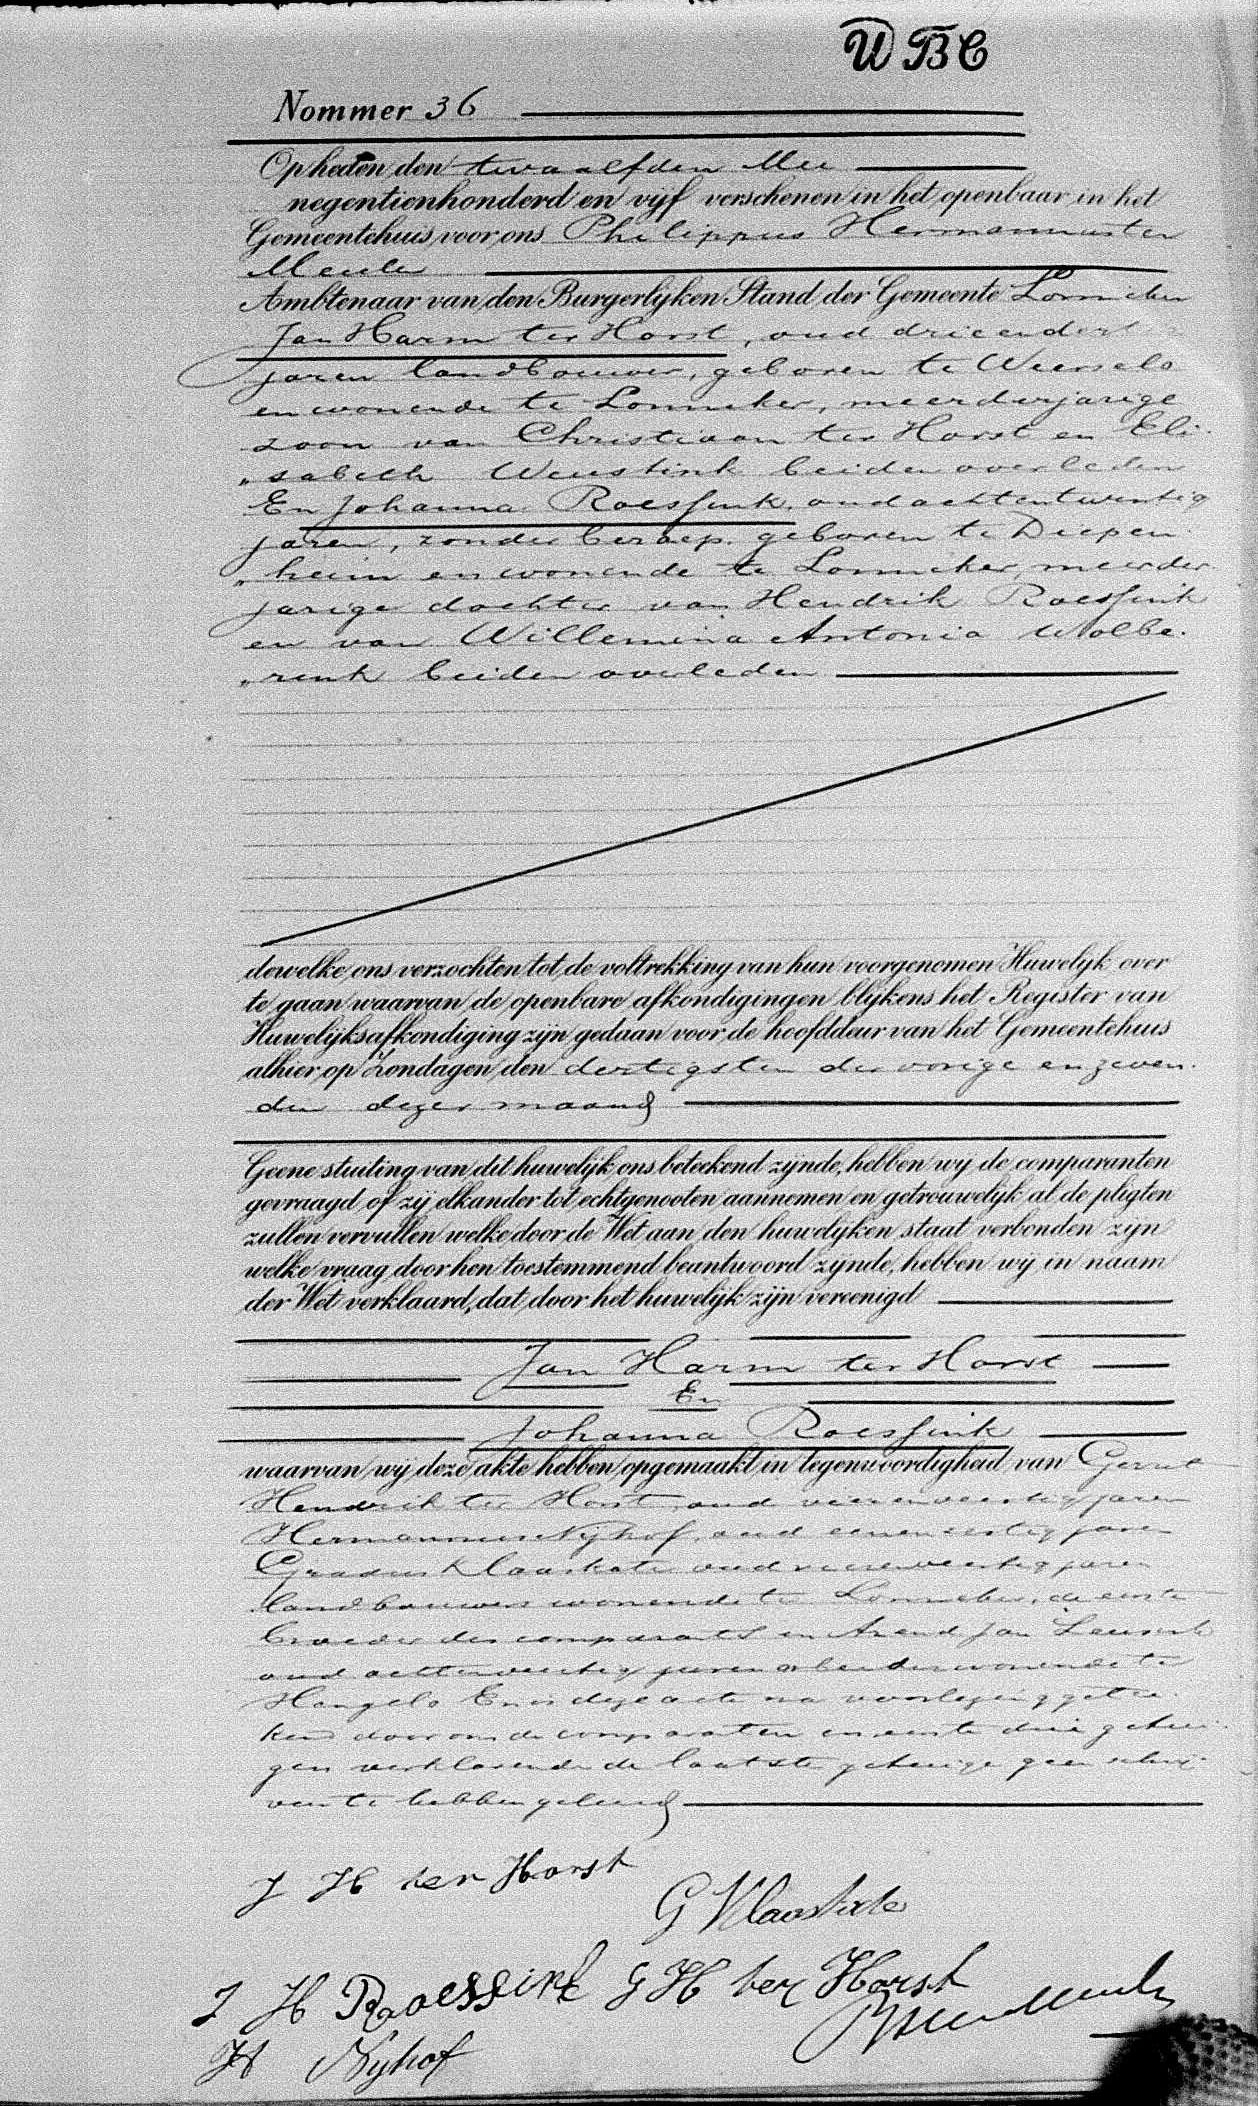 WBC
Nommer 36
Op heden den twaalfden Mei
negentienhonderd en vijf verschenen in het openbaar in het
Gemeentehuis, voor ons Philippus Hermannus ter
Meulen
Ambtenaar van den Burgerlijken Stand der Gemeente Lonneker
Jan Harm ter Horst, oud drieendert
jaren landbouwer, geboren te Weerselo
en wonende te Lonneker, meerderjarige
zoon van Christiaan ter Horst en Eli-
"sabeth Weustink beiden overleden
En Johanna Roessink, oud achtentwintig
jaren, zonder beroep, geboren te Diepen
"heim en wonende te Lonneker, meerder
jarige dochter van Hendrik Roessink
en van Willemina Antonia Wolbe-
"rink beiden overleden
dewelke ons verzochten tot de voltrekking van hun voorgenomen Huwelijk over
te gaan waarvan de openbare afkondigingen blijkens het Register van
Huwelijksafkondiging zijn gedaan voor de hoofddeur van het Gemeentehuis
alhier op Zondagen den dertigsten der vorige en zeven-
den dezer maand
Geene stuiting van dit huwelijk ons beteekend zijnde, hebben wij de comparanten
gevraagd of zij elkander tot echtgenooten aannemen en getrouwelijk al de pligten
zullen vervullen welke door de Wet aan den huwelijken staat verbonden zijn
welke vraag door hen toestemmend beantwoord zijnde, hebben wij in naam
der Wet verklaard, dat door het huwelijk zijn vereenigd
Jan Harm ter Horst
En
Johanna Roessink
waarvan wij deze akte hebben opgemaakt in tegenwoordigheid van Gerrit
Hendrik ter Horst, oud vierenveertig jaren
Hermannus Nijhof, oud eenenveertig jaren
Gradus Klaaskate oud vierenveertig jaren
landbouwers wonende te Lonneker, de eerste
broeder des comparants en Arend Jan
oud achtenveertig jaren arbeider wonende te
Hengelo En is deze acte na voorlezing getee
kend door ons de comparanten en eerste drie getui-
gen verklarende de laatste getuige geen schrij-
ven te hebben geleerd
J H ter Horst
G Klaaskate
J H Roessink G H ter Horst
H Nijhof